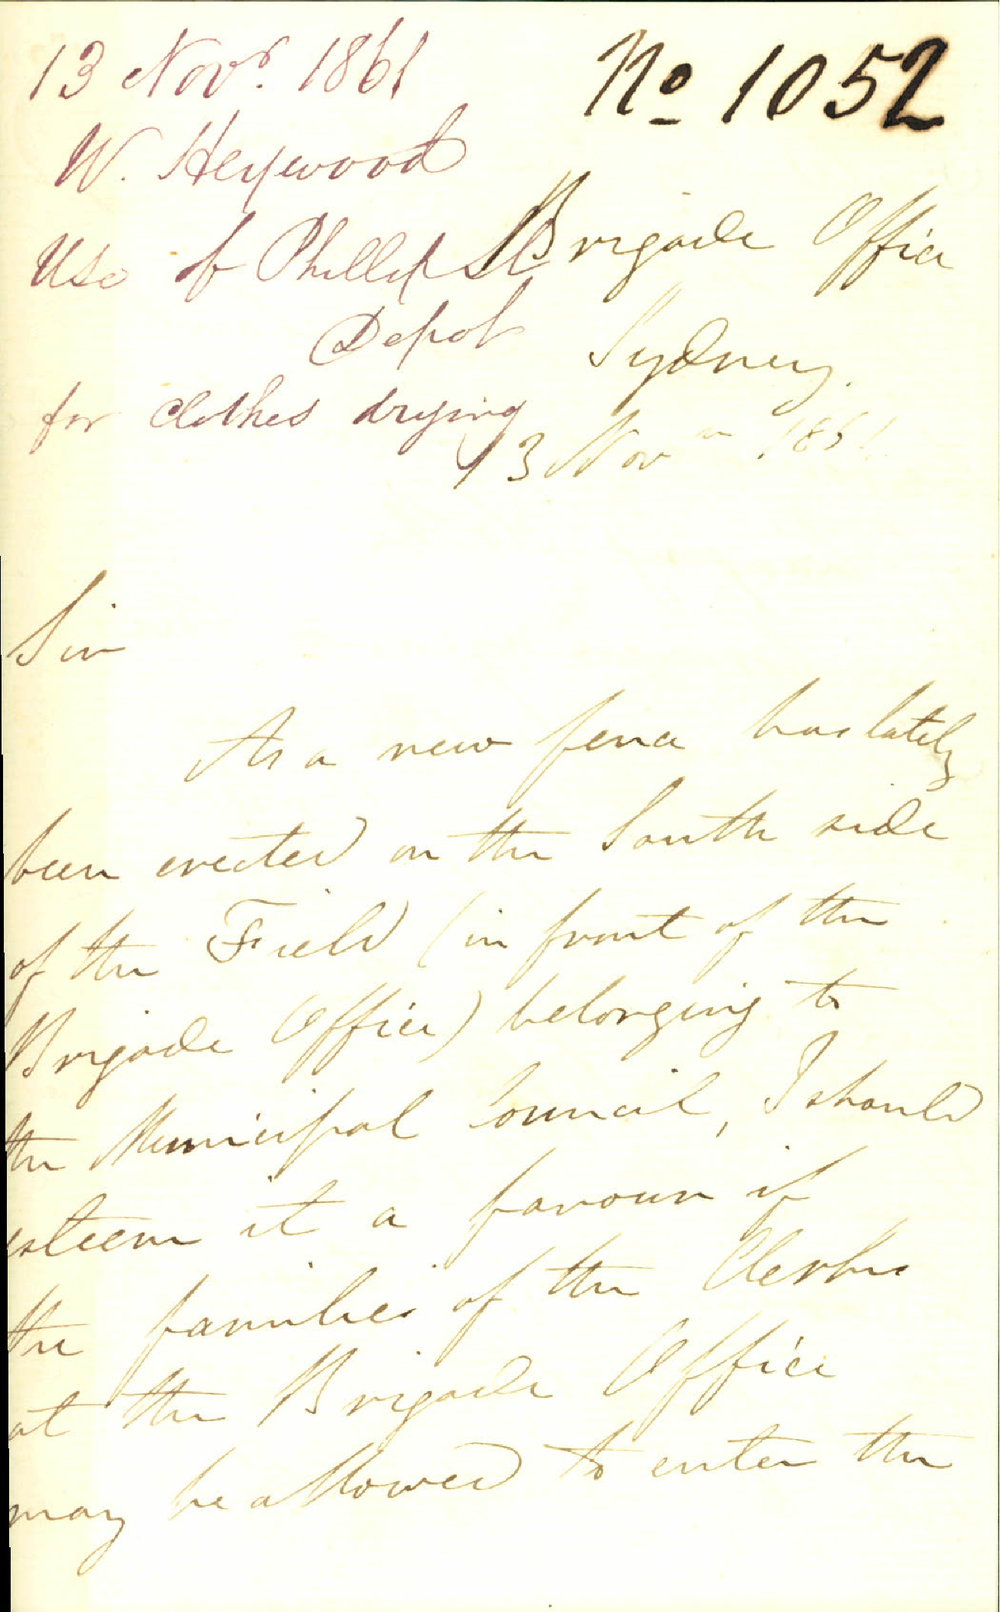 13 Novr. 1861
No 1052
W. Heywood
Use of Phillip St
Depot
for clothes drying
Brigade Office
Sydney.
13 Novr 1861
Sir
As a new fence has lately
been erected on the South side
of the Field (in front of the
Brigade Office) belonging to
the Municipal Council, I should
esteem it a favour if
the families of the Clerks
at the Brigade Office
may be allowed to enter the